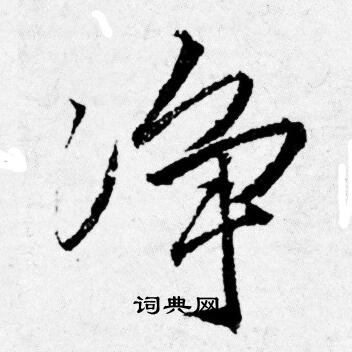 净
词典网